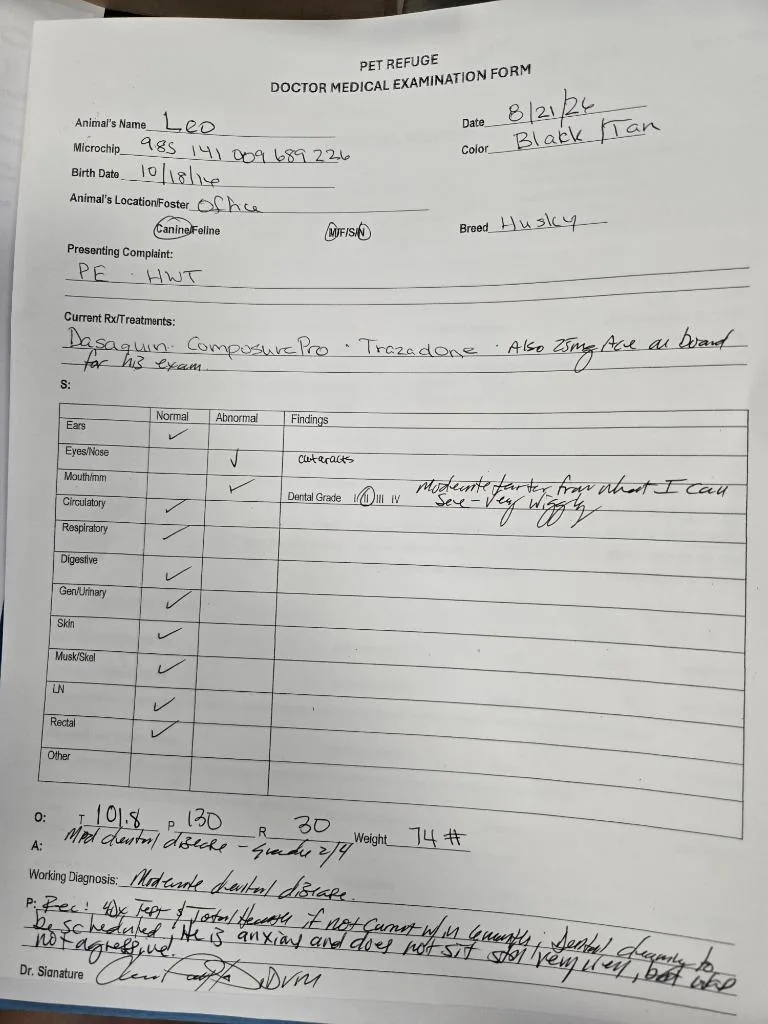 PET REFUGE
DOCTOR MEDICAL EXAMINATION FORM
Animal's Name Leo
Date 8/21/26
Microchip 985 141 009 689 226
Color Black/Tan
Birth Date 10/18/16
Animal's Location/Foster Office
Canine/Feline M/F/S/N Breed Husky
Presenting Complaint:
PE · HWT
Current Rx/Treatments:
Dasaquin · ComposurePro · Trazadone · Also 25mg Ace on board
for his exam.
S:
Normal Abnormal Findings
Ears ✓
Eyes/Nose ✓ cataracts
Mouth/mm ✓ Dental Grade I/II/III IV Moderate tarter from what I can
see - very wiggly
Circulatory ✓
Respiratory ✓
Digestive ✓
Gen/Urinary ✓
Skin ✓
Musk/Skel ✓
LN ✓
Rectal ✓
Other
O: T 101.8 P 130 R 30 Weight 74 #
A: Mod dental disease - grade 2/4
Working Diagnosis: Moderate dental disease.
P: Rec: 4Dx Test & Total if not current w/in; Dental cleaning to
be scheduled! He is anxious and does not sit still very well, but was
not agressive!
Dr. Signature DVM